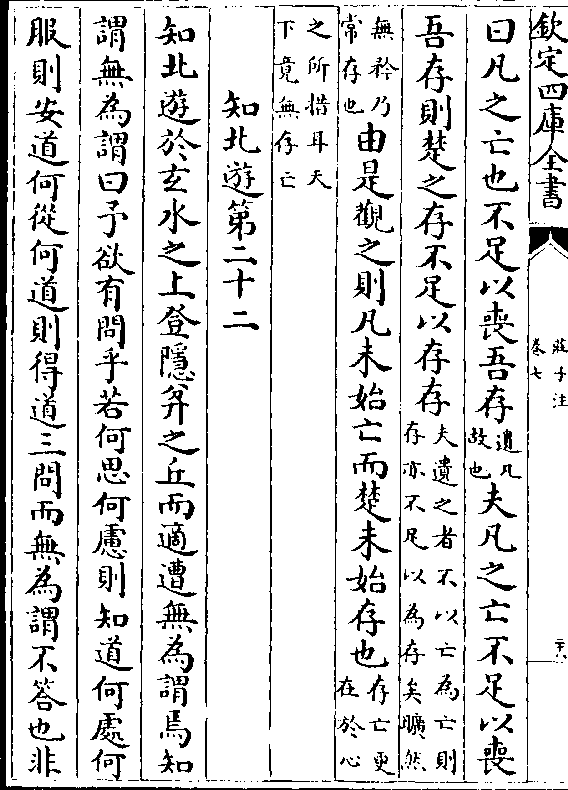 欽定四庫全書
莊子注
卷七
二十八
曰凡之亡也不足以喪吾存遺凡故也夫凡之亡不足以喪
吾存則楚之存不足以存存夫遺之者不以亡為亡則存亦不足以為存矣曠然
無矜乃常存也由是觀之則凡未始亡而楚未始存也存亡更在於心
之所措耳天下竟無存亡
知北遊第二十二
知北遊於玄水之上登隱弅之丘而適遭無為謂焉知
謂無為謂曰予欲有問乎若何思何慮則知道何處何
服則安道何從何道則得道三問而無為謂不答也非